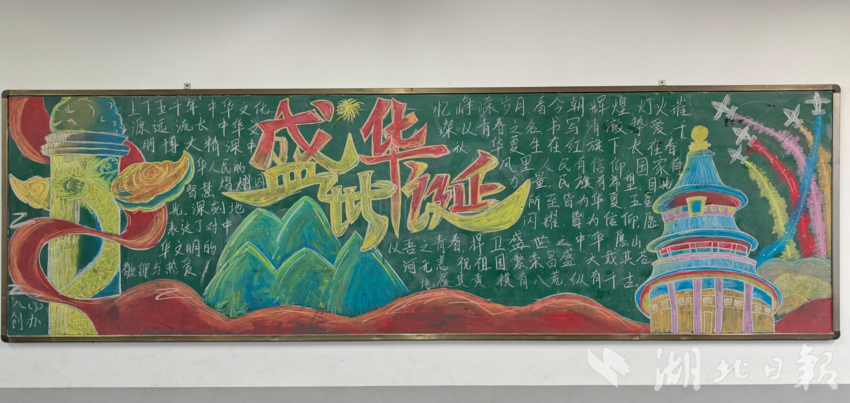 盛世华诞
上下五千年中华文化
源远流长 中华文
明博大精深中
华人民的
智慧熠熠闪
光,深刻地
表达了对中
华文明的
敬仰与热爱
忆峥嵘岁月 看今朝辉煌 灯火
以青春之名 书写清澈热爱
华夏 生在红旗下 长在春
风里 人民有信仰 国家
力量 民族有希望 目
所至 皆为华夏 五
闪耀 皆为信仰 愿
以吾之青春 捍卫盛世中华 愿山
河无恙 祝祖国繁荣昌盛
黄 横有八荒 纵有千古
八(3)
创办
湖北日报